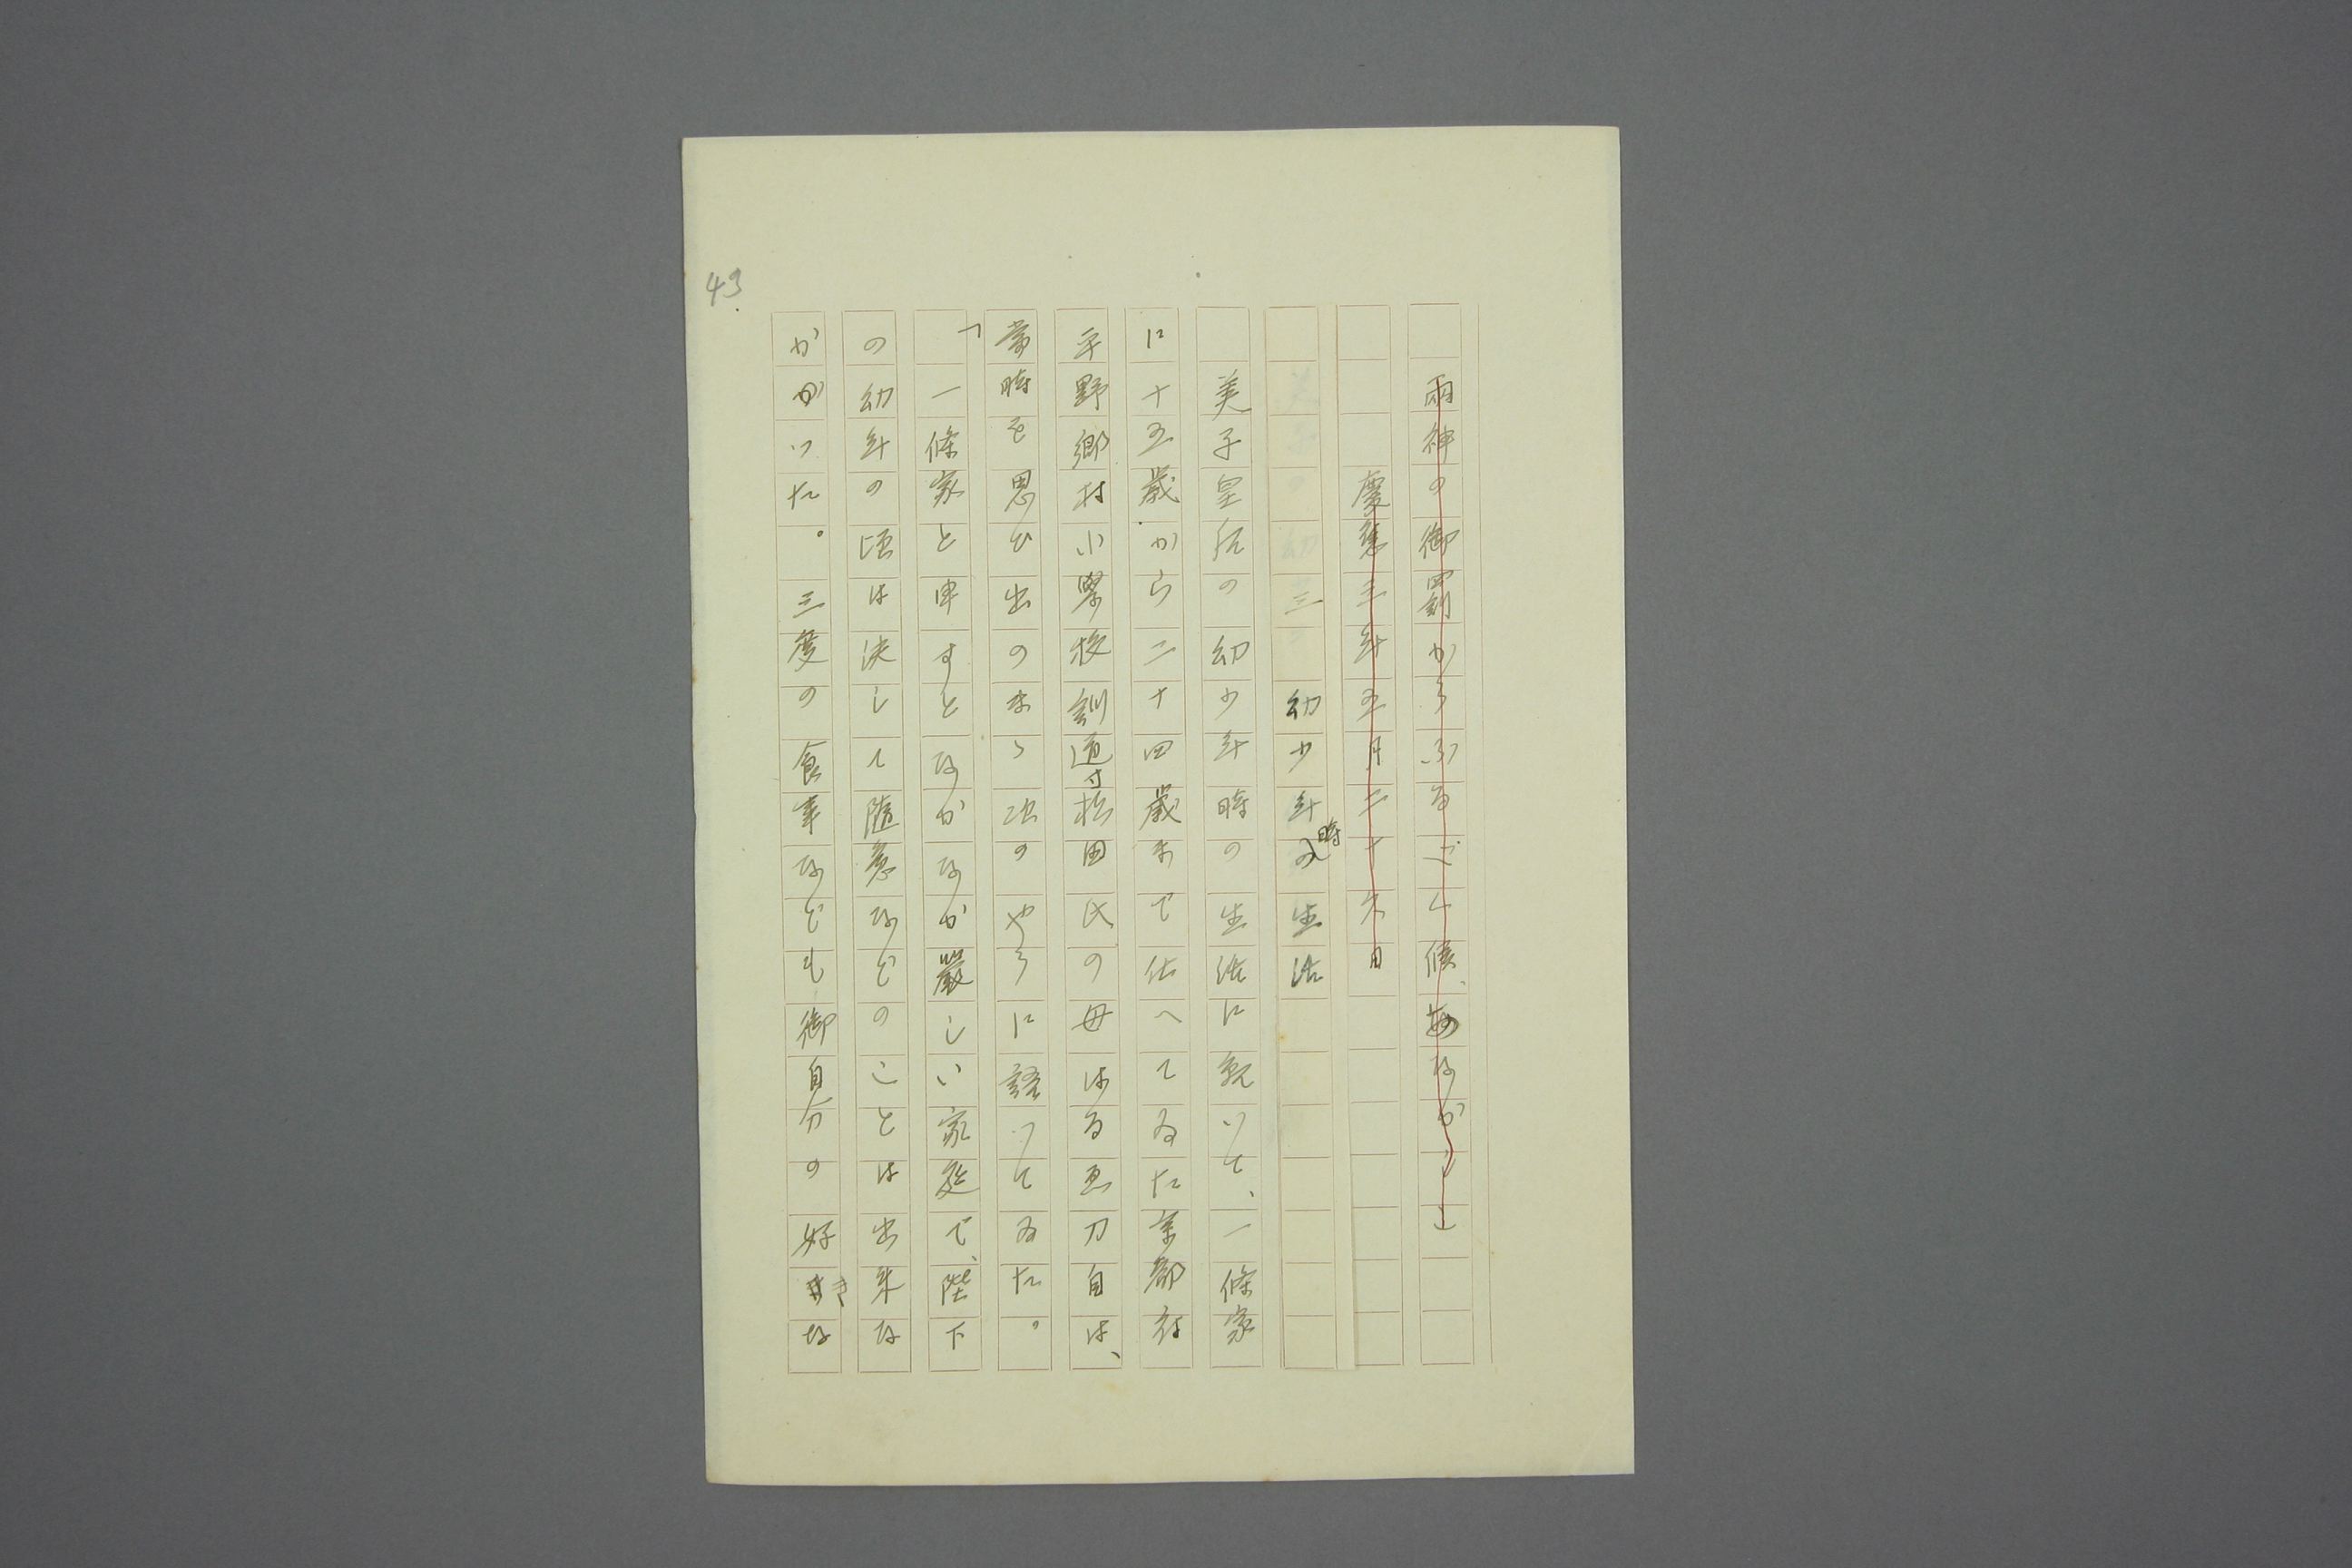 43
両神の御罰かうふるべく候、あなかしこ
慶應三年五月二十六日
三 幼少年時の生活
美子皇后の幼少年時の生活に就いて、一條家
に十五歳から二十四歳まで仕へてゐた京都府
平野郷村小學校訓導寸松田氏の母はるゑ刀自は、
當時を思ひ出のまゝ次のやうに語つてゐた。
「一條家と申すとなかなか嚴しい家庭で、陛下
の幼年の頃は決して隨意などのことは出来な
かかつた。三度の食事なども御自分の好きな